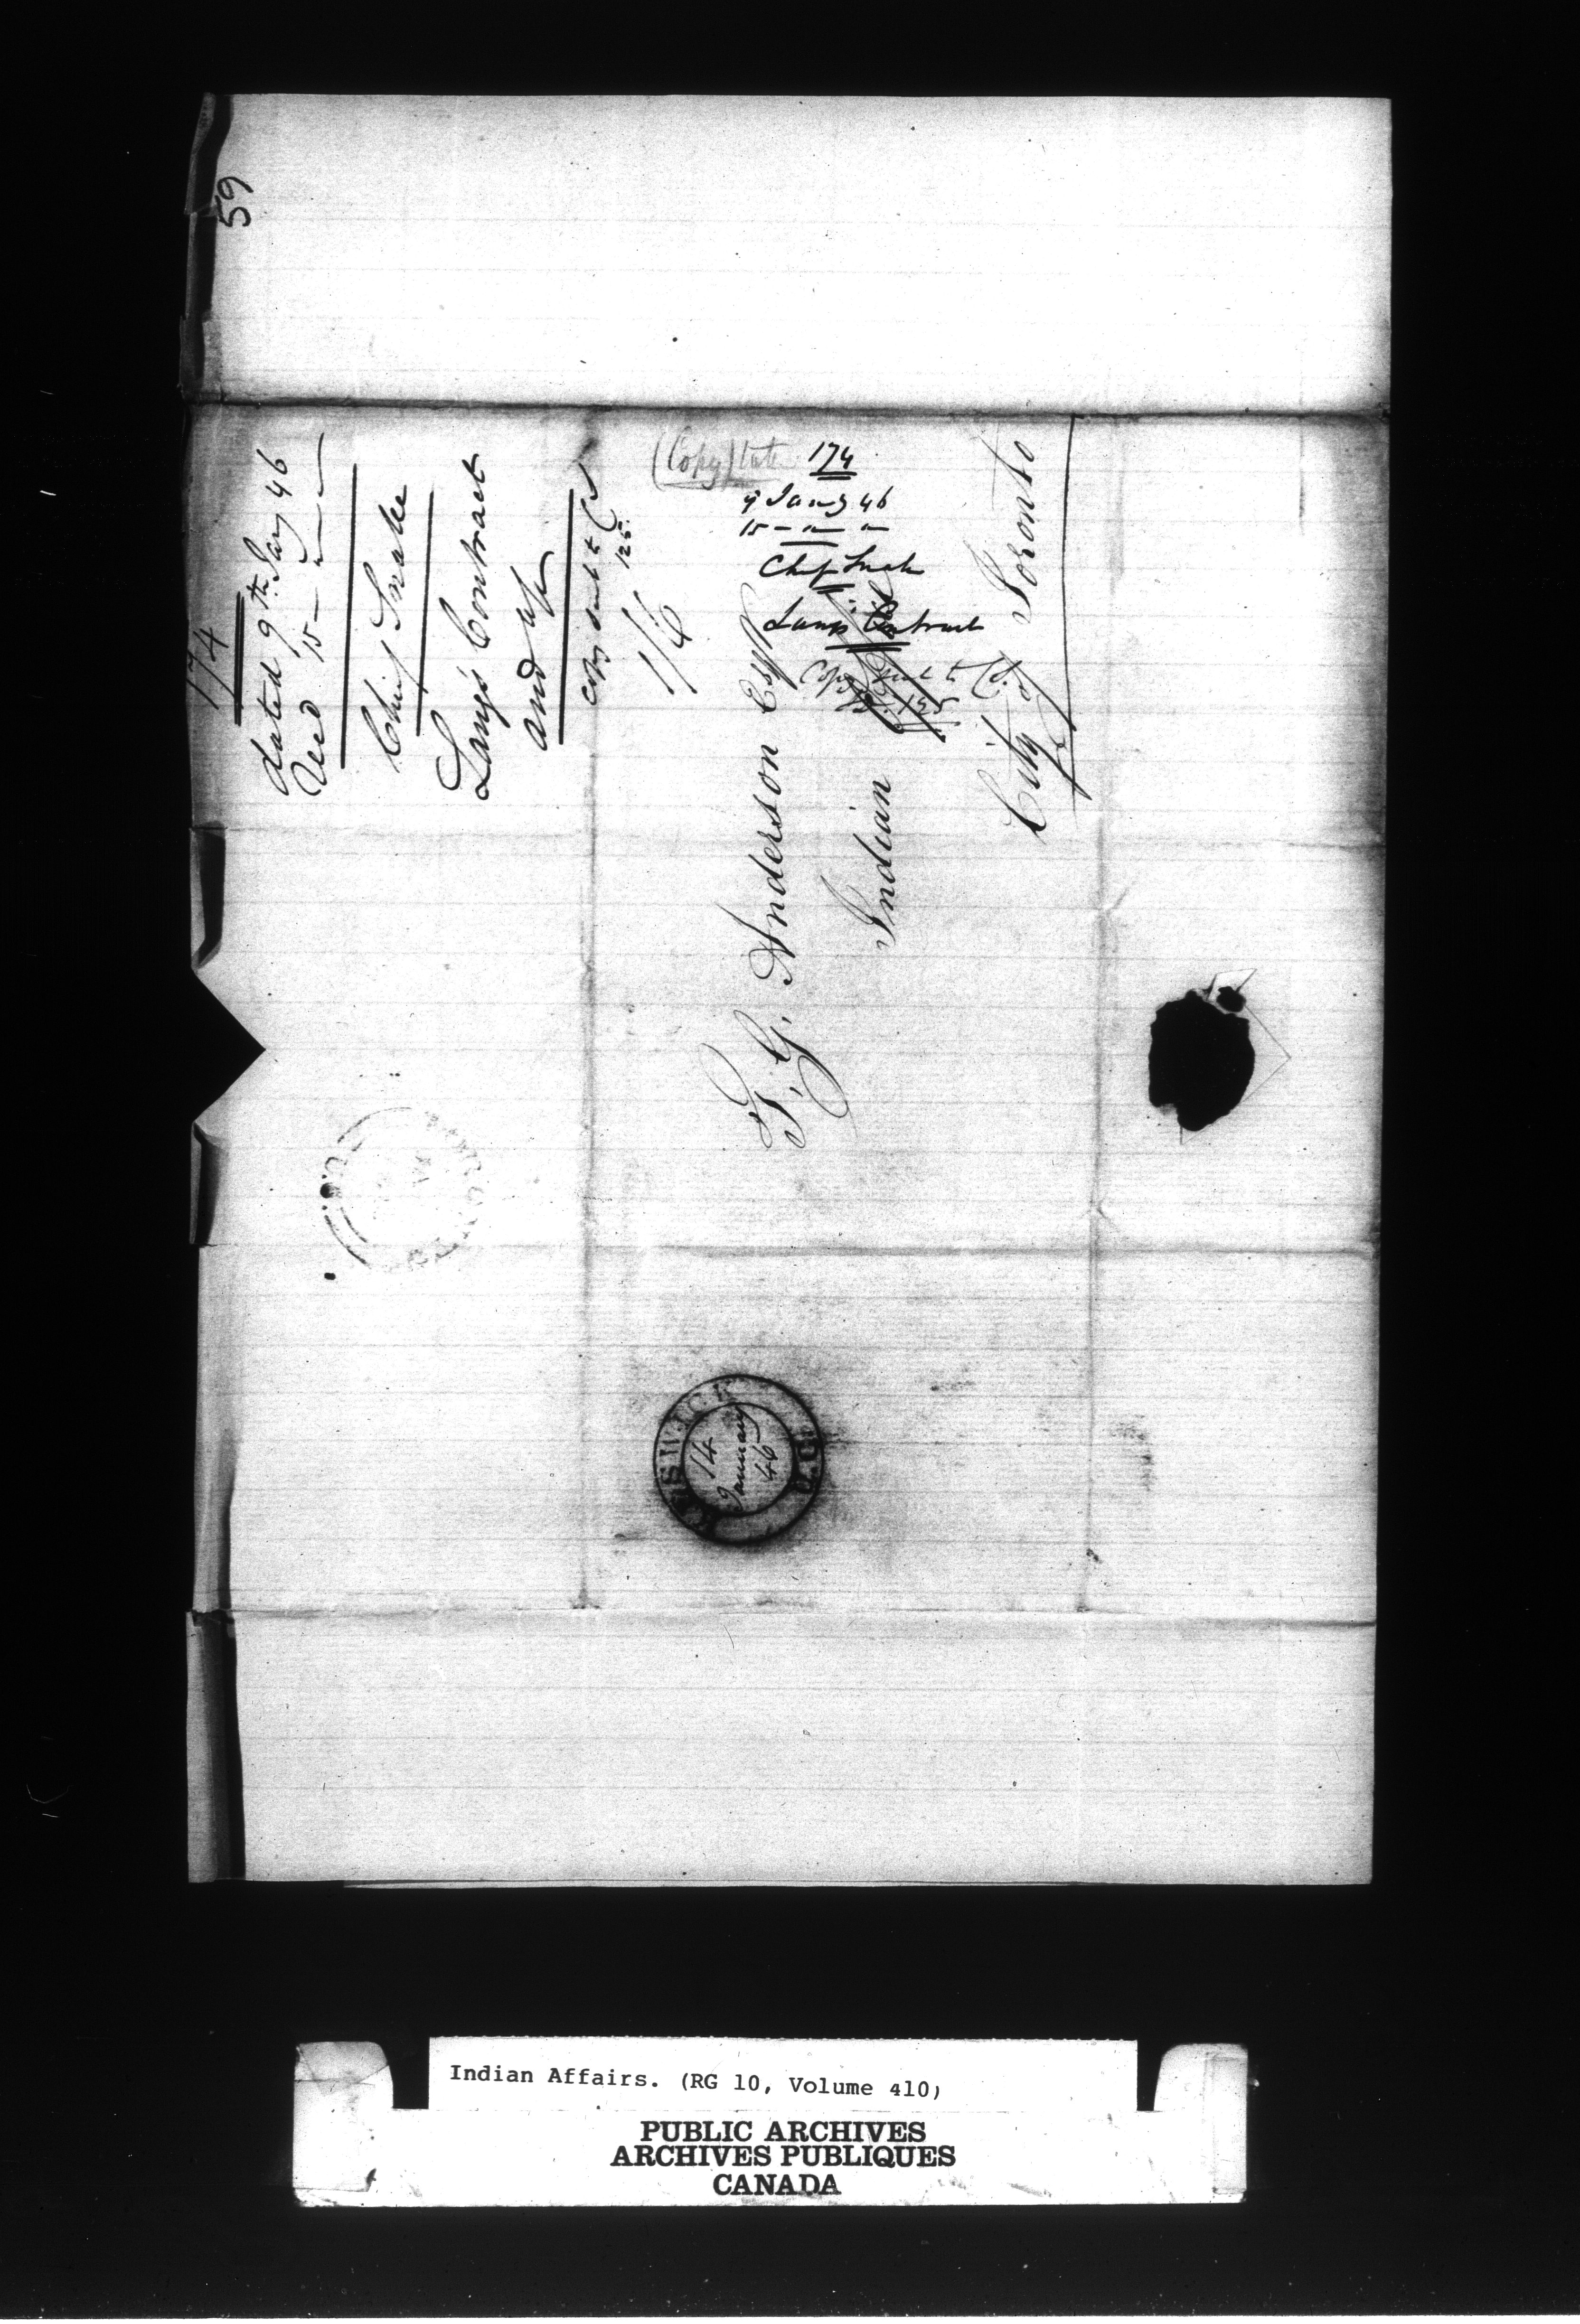 59
174
dated 9th Jany 46
Recd 15 — " — "
Chief Snake
Lang's Contract
copy sent to
125
1/6
(Copy)
174
9 Jany 46
15 — " — "
Chief Snake
Lang's Contract
Copy sent to
125
T. G. Anderson Esqr
Indian
City of Toronto
KESWICK
14
January
46
U.C.
Indian Affairs. (RG 10, Volume 410)
PUBLIC ARCHIVES
ARCHIVES PUBLIQUES
CANADA